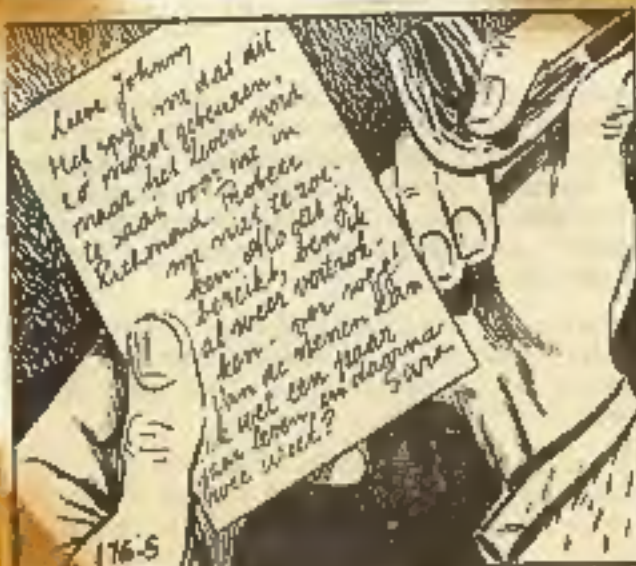 Lieve Johnny
Het spijt me dat dit
zo moest gebeuren,
maar het leven word
te saai voor me in
Richmond. Probeer
me niet te zoe-
ken. Als dit je
bereikt, ben ik
al weer vertrok-
ken.
Van de stenen kan
ik wel een paar
jaar leven, en daarna
wee weet?
Sara
176-5